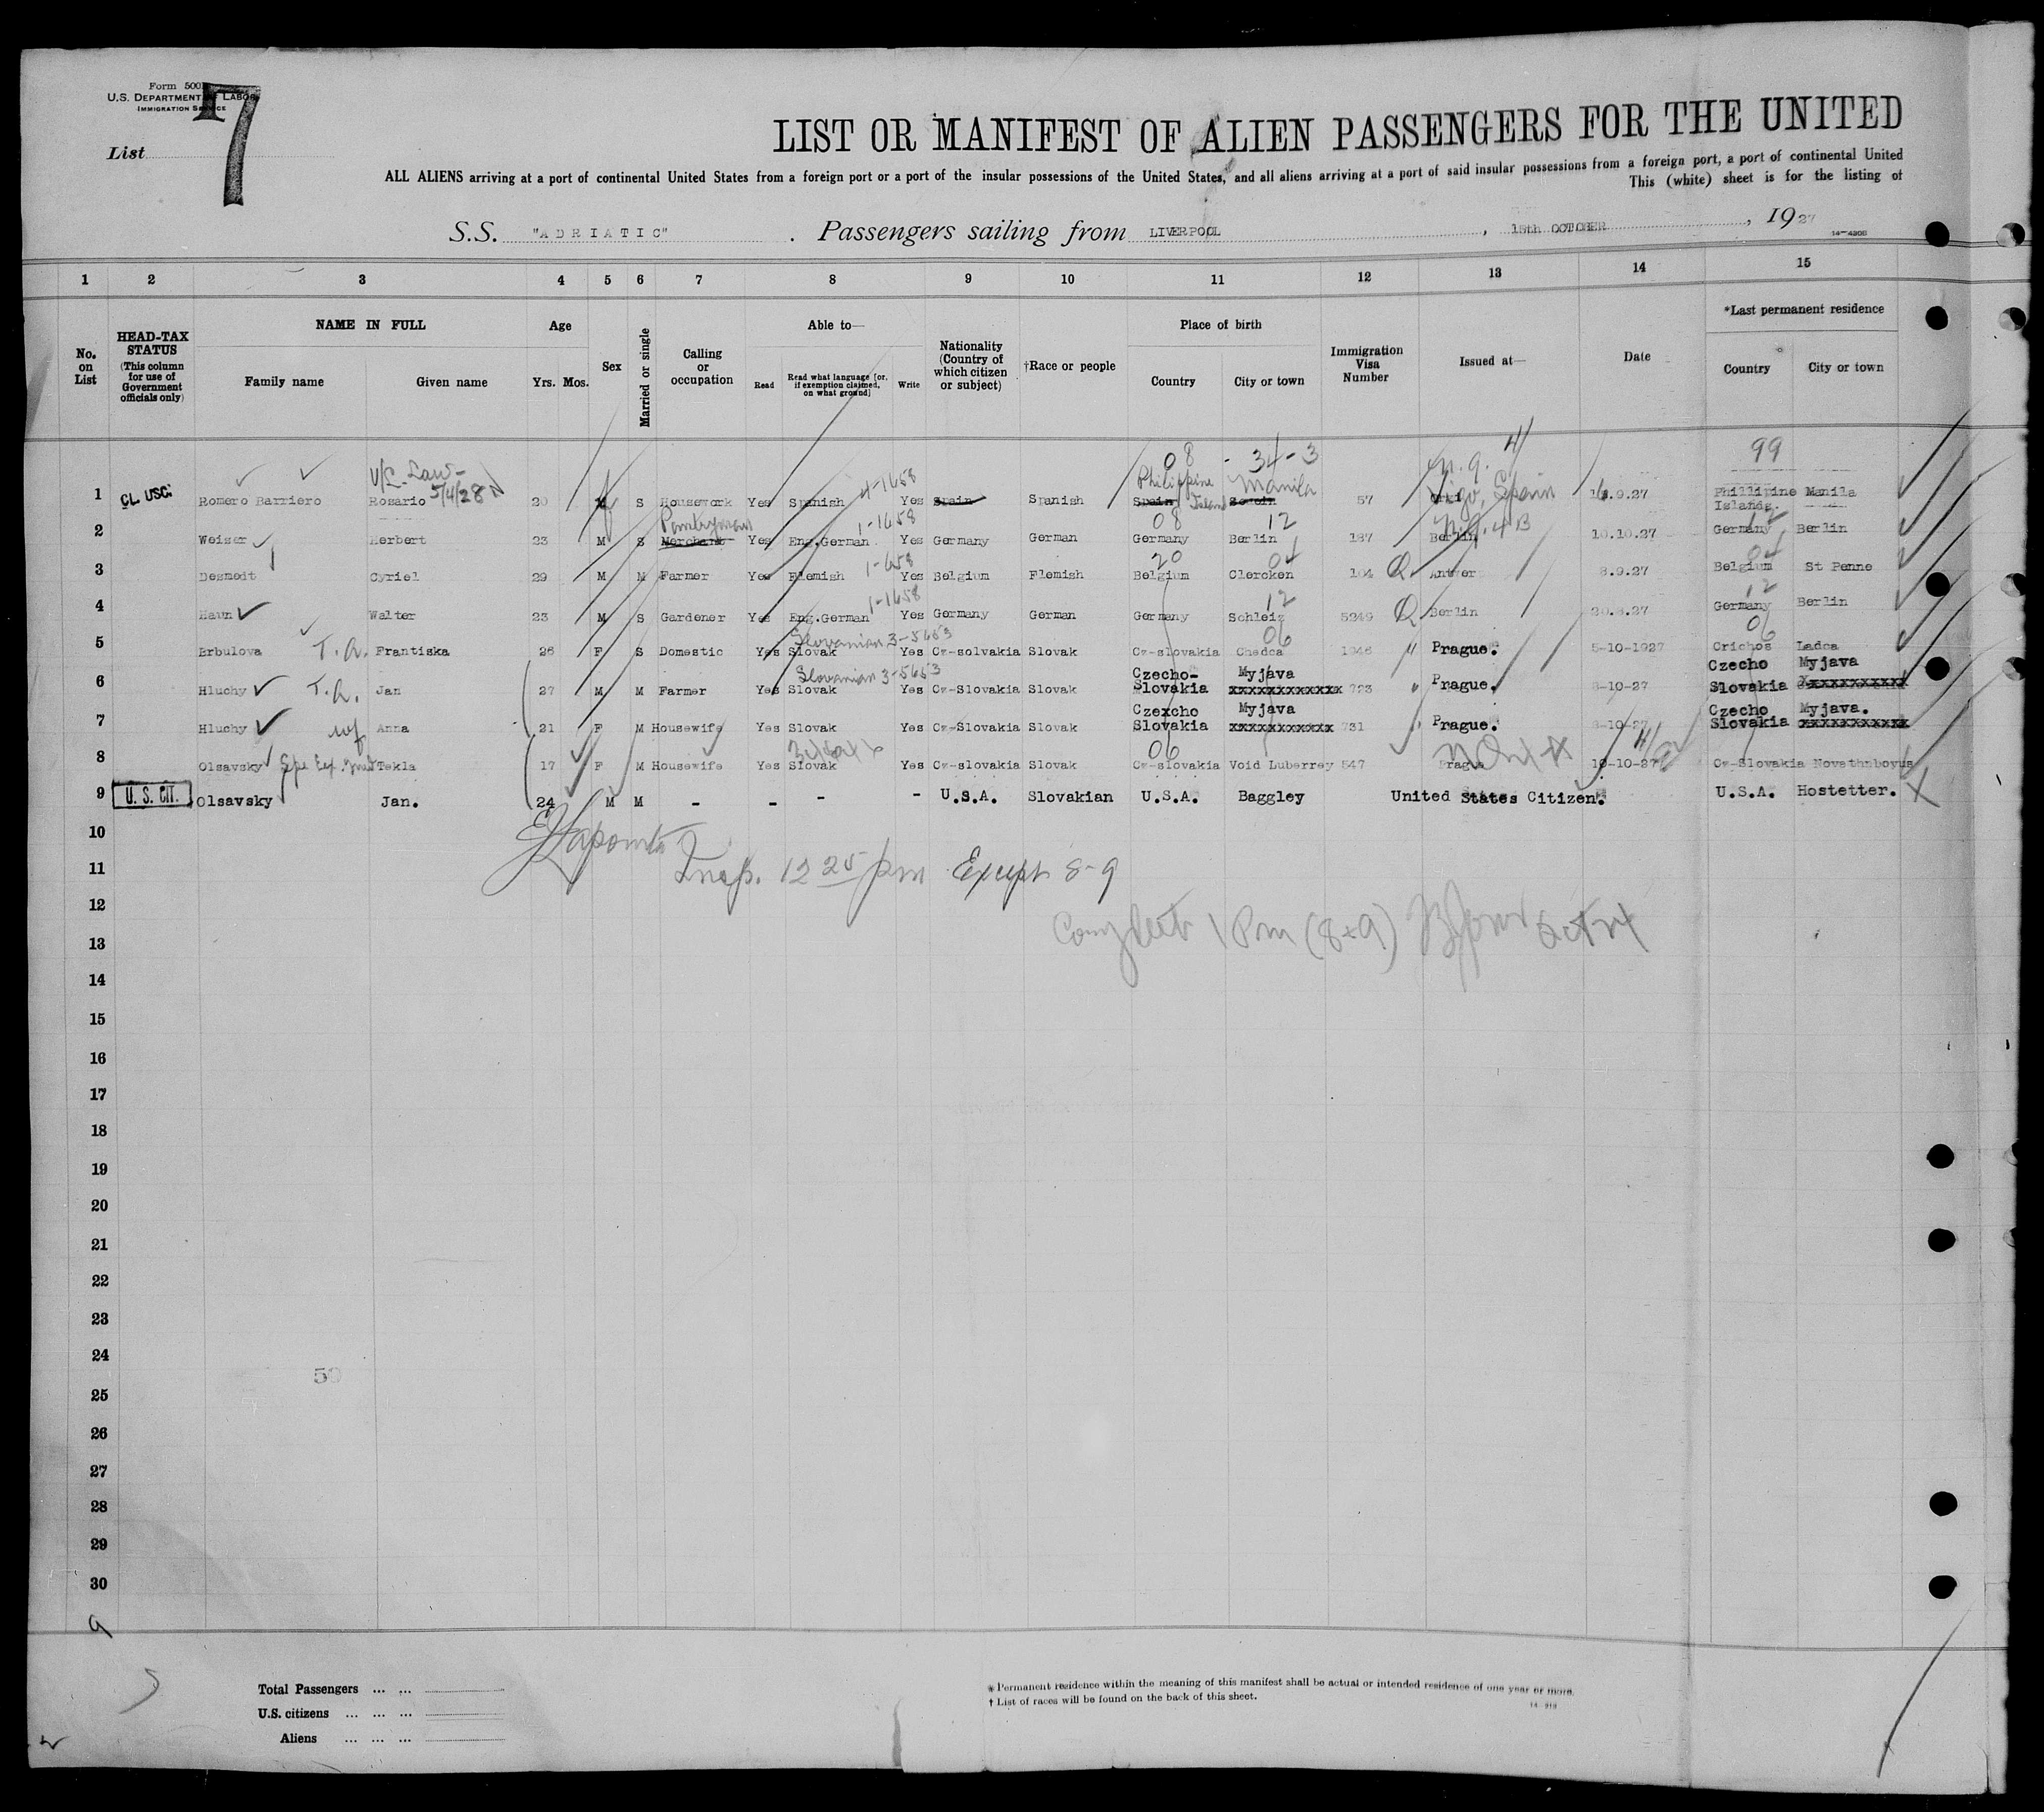 Form 500
U.S. DEPARTMENT OF LABOR
IMMIGRATION SERVICE
7
List
LIST OR MANIFEST OF ALIEN PASSENGERS FOR THE UNITED
ALL ALIENS arriving at a port of continental United States from a foreign port or a port of the insular possessions of the United States, and all aliens arriving at a port of said insular possessions from a foreign port, a port of continental United
This (white) sheet is for the listing of
S.S. "ADRIATIC" . Passengers sailing from LIVERPOOL , 15th OCTOBER , 1927
14-4206
1 2 3 4 5 6 7 8 9 10 11 12 13 14 15
No. on List
HEAD-TAX STATUS (This column for use of Government officials only)
NAME IN FULL
Family name Given name
Age
Yrs. Mos.
Sex
Married or single
Calling or occupation
Able to—
Read Read what language [or, if exemption claimed, on what ground] Write
Nationality (Country of which citizen or subject)
†Race or people
Place of birth
Country City or town
Immigration Visa Number
Issued at—
Date
*Last permanent residence
Country City or town
08 - 34-3 99
V/L Law- 5/4/28 4-1658 Philippine Island Manila Vigo, Spain
1 CL USC. Romero Barriero Rosario 20 M S Housework Yes Spanish Yes Spain Spanish Spain 57 .9.27 Phillipine Islands. Manila
Pantryman 1-1658 08 12 12
2 Weiser Herbert 23 M S Merchant Yes Eng.German Yes Germany German Germany Berlin 187 Berlin 10.10.27 Germany Berlin
1-1658 20 04 04
3 Desmedt Cyriel 29 M M Farmer Yes Flemish Yes Belgium Flemish Belgium Clercken 104 Antwer 8.9.27 Belgium St Penne
1-1658 12 12
4 Haun Walter 23 M S Gardener Yes Eng.German Yes Germany German Germany Schleiz 5249 Berlin 20.8.27 Germany Berlin
Slovanian 3-5653 06 06
5 Brbulova T.A. Frantiska 26 F S Domestic Yes Slovak Yes Cz-solvakia Slovak Cz-slovakia Chedca 1946 " Prague. 5-10-1927 Crichos Ladca
Slovanian 3-5653
6 Hluchy T.A. Jan 27 M M Farmer Yes Slovak Yes Cz-Slovakia Slovak Czecho-Slovakia Myjava xxxxxxxxxxxx 723 " Prague. 8-10-27 Czecho Slovakia Myjava xxxxxxxxxxx
7 Hluchy wf Anna 21 F M Housewife Yes Slovak Yes Cz-Slovakia Slovak Czexcho Slovakia Myjava xxxxxxxxxxx 731 " Prague. 8-10-27 Czecho Slovakia Myjava. xxxxxxxxxxx
06
8 Olsavsky Tekla 17 F M Housewife Yes Slovak Yes Cz-slovakia Slovak Cz-slovakia Void Luberrey 547 Prague 10-10-27 Cz-Slovakia Novethnboyus
9 U. S. CIT. Olsavsky Jan. 24 M M - - - - U.S.A. Slovakian U.S.A. Baggley United States Citizen. U.S.A. Hostetter. X
10
11 Insp. 12 25 pm Except 8-9
12
13 Complete 1 Pm (8+9)
14
15
16
17
18
19
20
21
22
23
24
50
25
26
27
28
29
30
9
Total Passengers ... ...
U.S. citizens ... ... ...
Aliens ... ... ...
* Permanent residence within the meaning of this manifest shall be actual or intended residence of one year or more.
† List of races will be found on the back of this sheet.